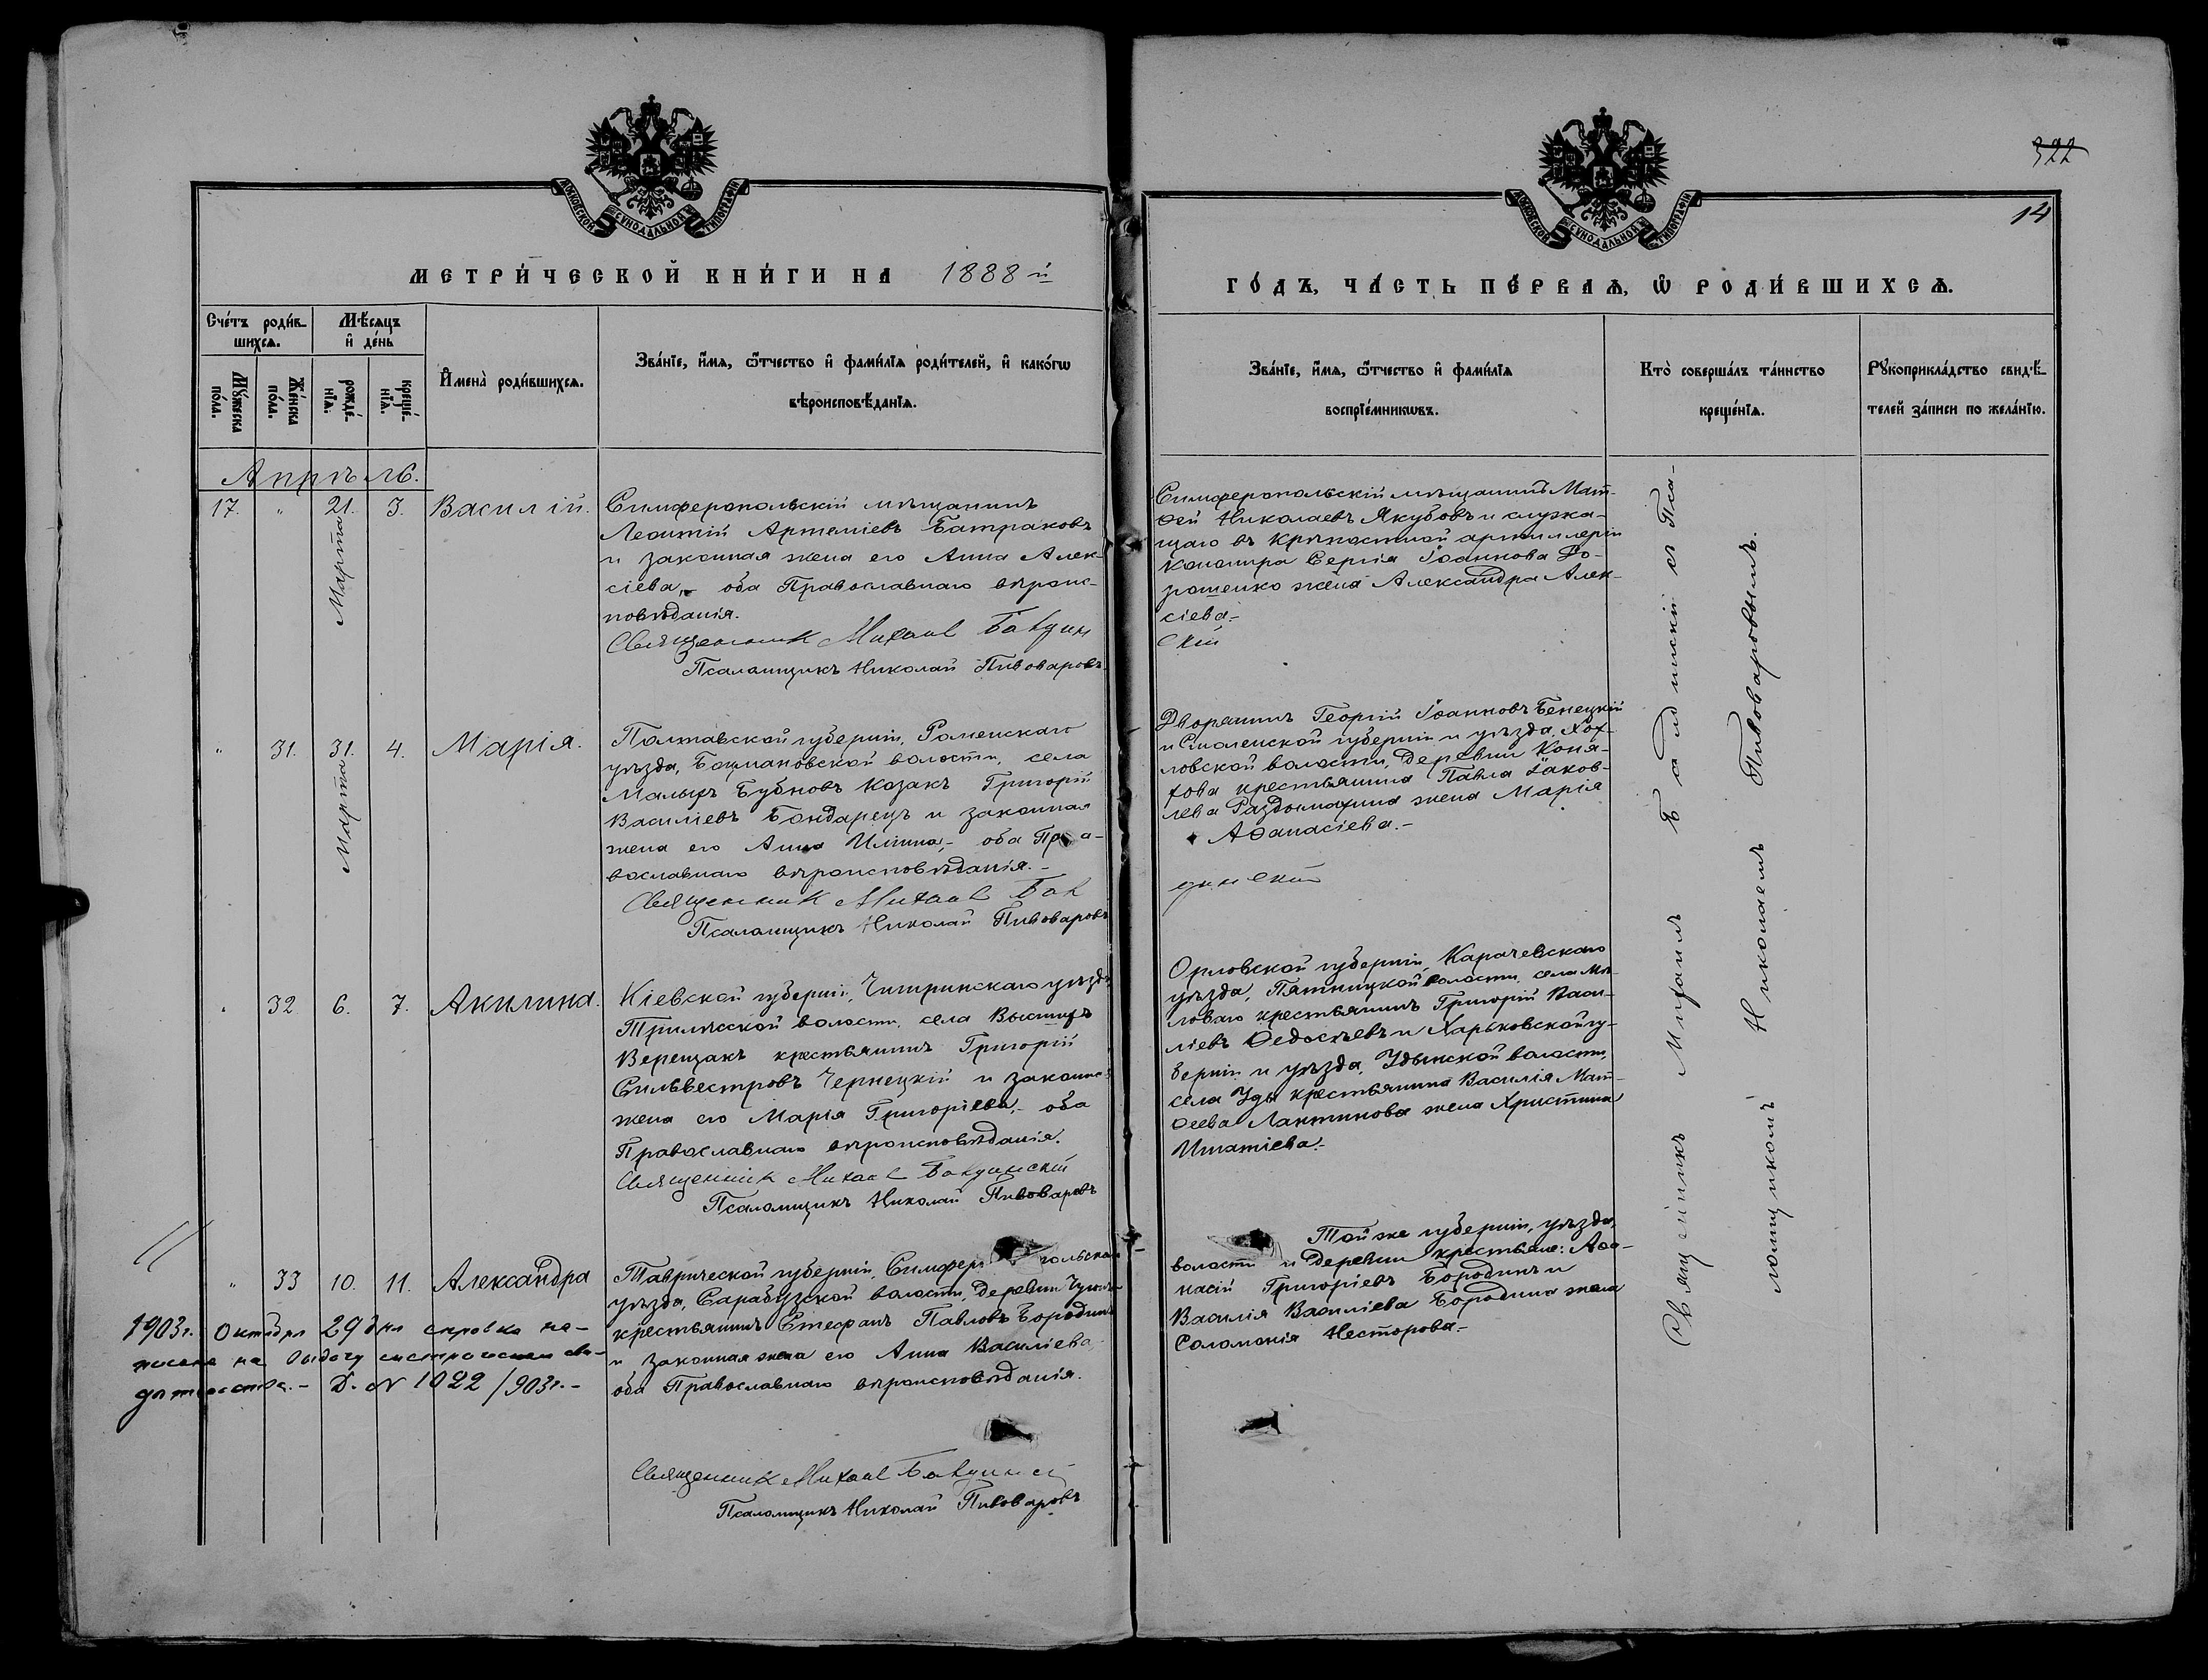 322
14
МОСКОВСКОЙ СУНОДАЛЬНОЙ ТИПОГРАФІИ
МОСКОВСКОЙ СУНОДАЛЬНОЙ ТИПОГРАФІИ
МЕТРИ́ЧЕСКОЙ КНИ́ГИ НА 1888 й
ГО́ДЪ, ЧА́СТЬ ПЕ́РВАѦ, Ѡ РОДИ́ВШИХСѦ.
Сче́тъ роди́в-
шихсѧ.
Мѣ́сѧцъ
и҆ де́нь
Мꙋ́жеска
по́ла.
Же́нска
по́ла.
рожде́-
нїѧ.
креще́-
нїѧ.
И҆мена̀ роди́вшихсѧ.
Зва́нїе, и҆́мѧ, ѻ҆́тчество и҆ фами́лїѧ роди́телей, и҆ како́гѡ
вѣроисповѣ́данїѧ.
Зва́нїе, и҆́мѧ, ѻ҆́тчество и҆ фами́лїѧ
воспрїе́мникѡвъ.
Кто̀ соверша́лъ та́инство
креще́нїѧ.
Рꙋкоприкла́дство свидѣ́-
телей за́писи по жела́нїю.
Апрѣль.
17. " 21. Марта 3. Василій.
Симферопольскій мѣщанинъ
Леонтій Артеміевъ Батраковъ
и законная жена его Анна Алек-
сіева,- оба Православнаго вѣроис-
повѣданія.
Священникъ Михаил
Псаломщикъ Николай Пивоваровъ
Симферопольскій мѣщанинъ Мат-
ѳей Николаевъ Якубовъ и служа-
щаго въ крѣпостной артиллеріи
канонира Сергія Іоаннова До-
рошенко жена Александра Алек-
сіева.-
скій
" 31. 31. Марта 4. Марія.
Полтавской губерніи, Роменскаго
уѣзда, волости, села
Малыхъ Бубновъ козакъ Григорій
Василіевъ Бондарецъ и законная
жена его Анна Иліина,- оба Пра-
вославнаго вѣроисповѣданія.-
Священникъ Михаил
Псаломщикъ Николай Пивоваровъ
Дворянинъ Георгій Іоанновъ Бенецкій
и Смоленской губерніи и уѣзда, Хох-
ловской волости, деревни Коня-
хова крестьянина Павла Іаков-
лева жена Марія
Аѳанасіева.-
" 32 6. 7. Акилина.
Кіевской губерніи, Чигиринскаго уѣзда,
Трилѣсской волости, села
Верещакъ крестьянинъ Григорій
Сильвестровъ Чернецкій и законная
жена его Марія Григоріева,- оба
Православнаго вѣроисповѣданія.
Священникъ Михаил
Псаломщикъ Николай Пивоваровъ
Орловской губерніи, Карачевскаго
уѣзда, Пятницкой волости, села Мы-
ловаго крестьянинъ Григорій Васи-
ліевъ Ѳедосѣевъ и Харьковской гу-
берніи и уѣзда, Удынской волости,
села Уды крестьянина Василія Мат-
ѳеева Лактинова жена Христина
Игнатіева.-
" 33 10. 11. Александра
Таврической губерніи, Симферопольскаго
уѣзда, Сарабузской волости, деревни
крестьянинъ Стефанъ Павловъ Бородинъ
и законная жена его Анна Василіева
оба Православнаго вѣроисповѣданія.
Священникъ Михаил
Псаломщикъ Николай Пивоваровъ
Той же губерніи, уѣзда,
волости и деревни крестьяне: Аѳа-
насій Григоріевъ Бородинъ и
Василія Василіева Бородина жена
Соломонія Несторова.-
1903 г. Октября 29 дня справка на-
писана на выдачу метрическаго сви-
дѣтельства.- Д. № 1022/903 г.-
Священникъ Михаилъ съ Пса-
ломщикомъ Николаемъ Пивоваровымъ.